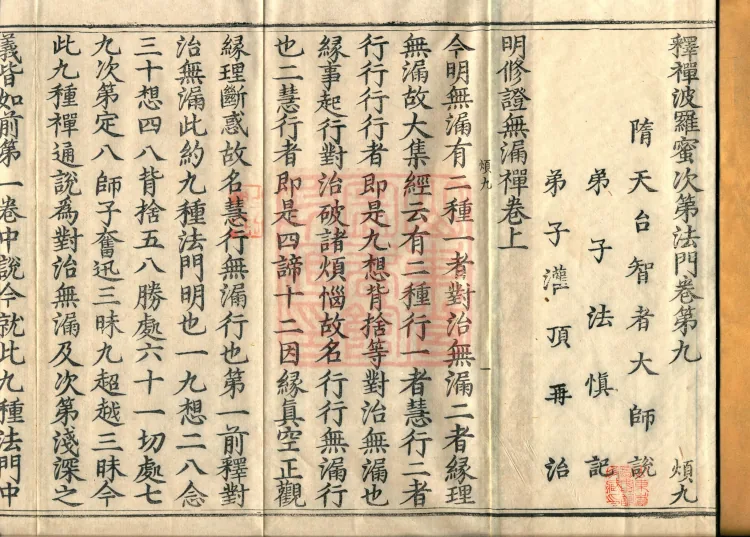 釋禪波羅蜜次第法門卷第九 煩九
隋天台智者大師說
弟子法慎記
弟子灌頂再治
明修證無漏禪卷上
煩九
今明無漏有二種一者對治無漏二者緣理
無漏故大集經云有二種行一者慧行二者
行行行行者即是九想背捨等對治無漏也
緣事起行對治破諸煩惱故名行行無漏行
也二慧行者即是四諦十二因緣真空正觀
緣理斷惑故名慧行無漏行也第一前釋對
治無漏此約九種法門明也一九想二八念
三十想四八背捨五八勝處六十一切處七
九次第定八師子奮迅三昧九超越三昧今
此九種禪通說為對治無漏及次第淺深之
義皆如前第一卷中說今就此九種法門中